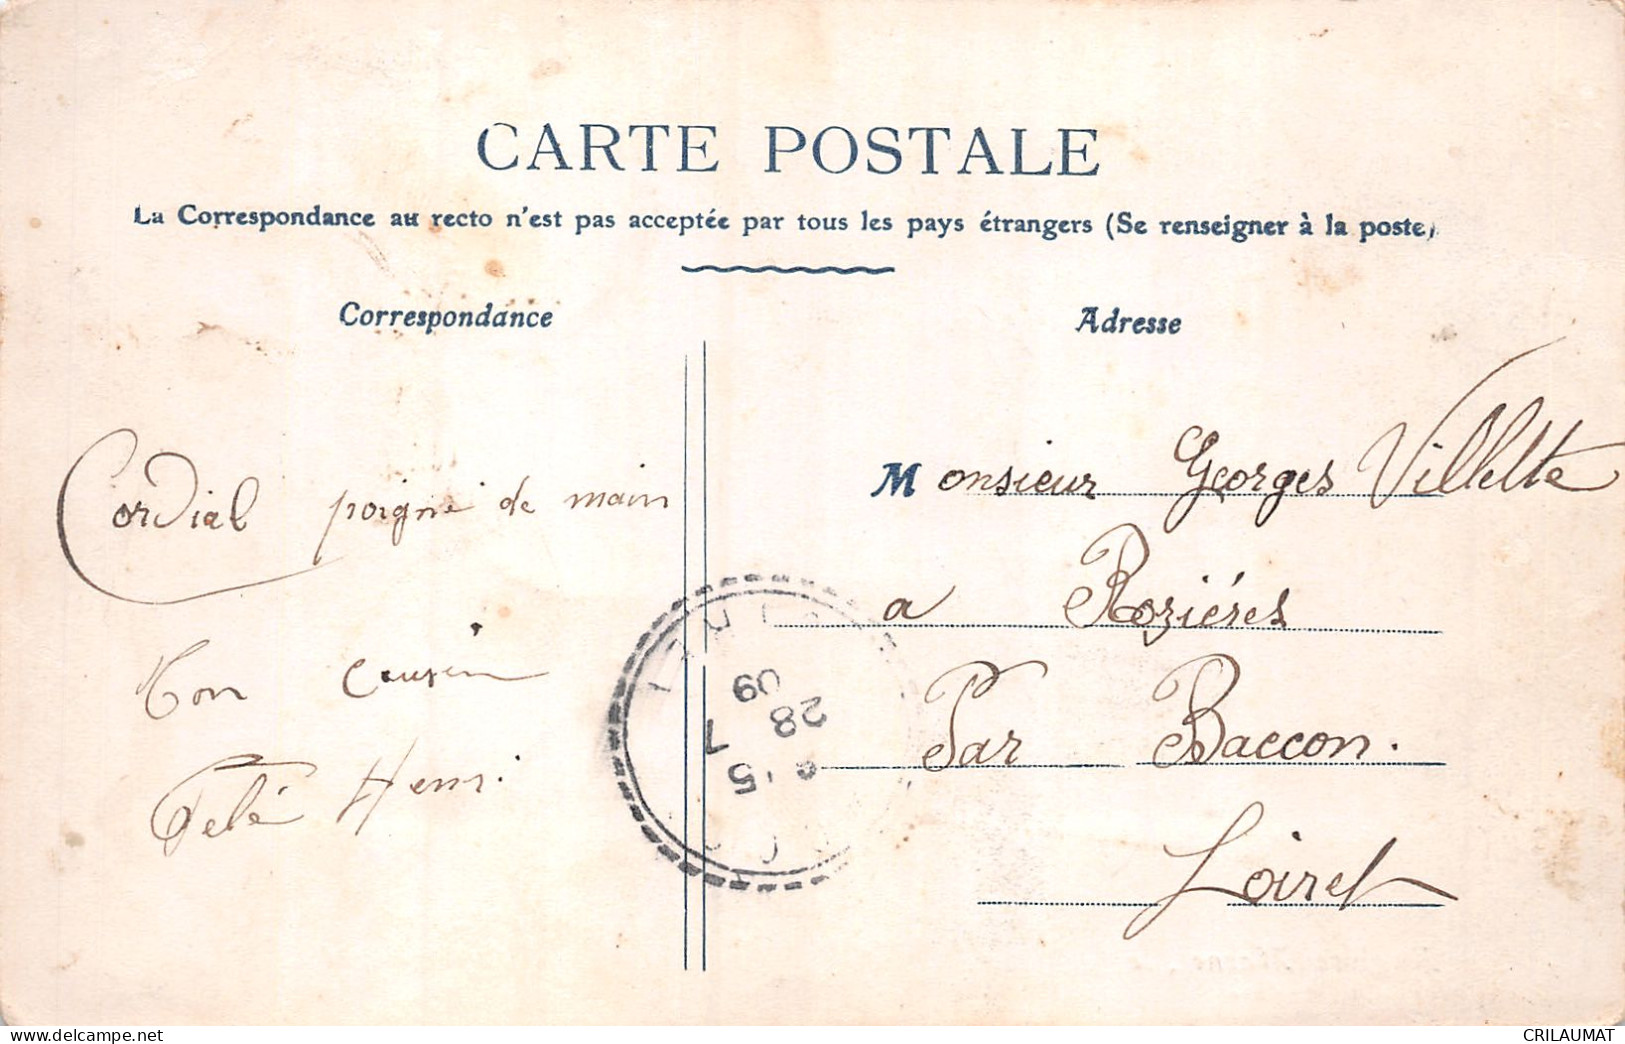 CARTE POSTALE
La Correspondance au recto n'est pas acceptée par tous les pays étrangers (Se renseigner à la poste)
Correspondance
Cordial poigné de main
Ton cousin
Henri
Adresse
Monsieur Georges Villette
a Roziéres
Par Baccon.
Loiret
28 7
09
CRILAUMAT